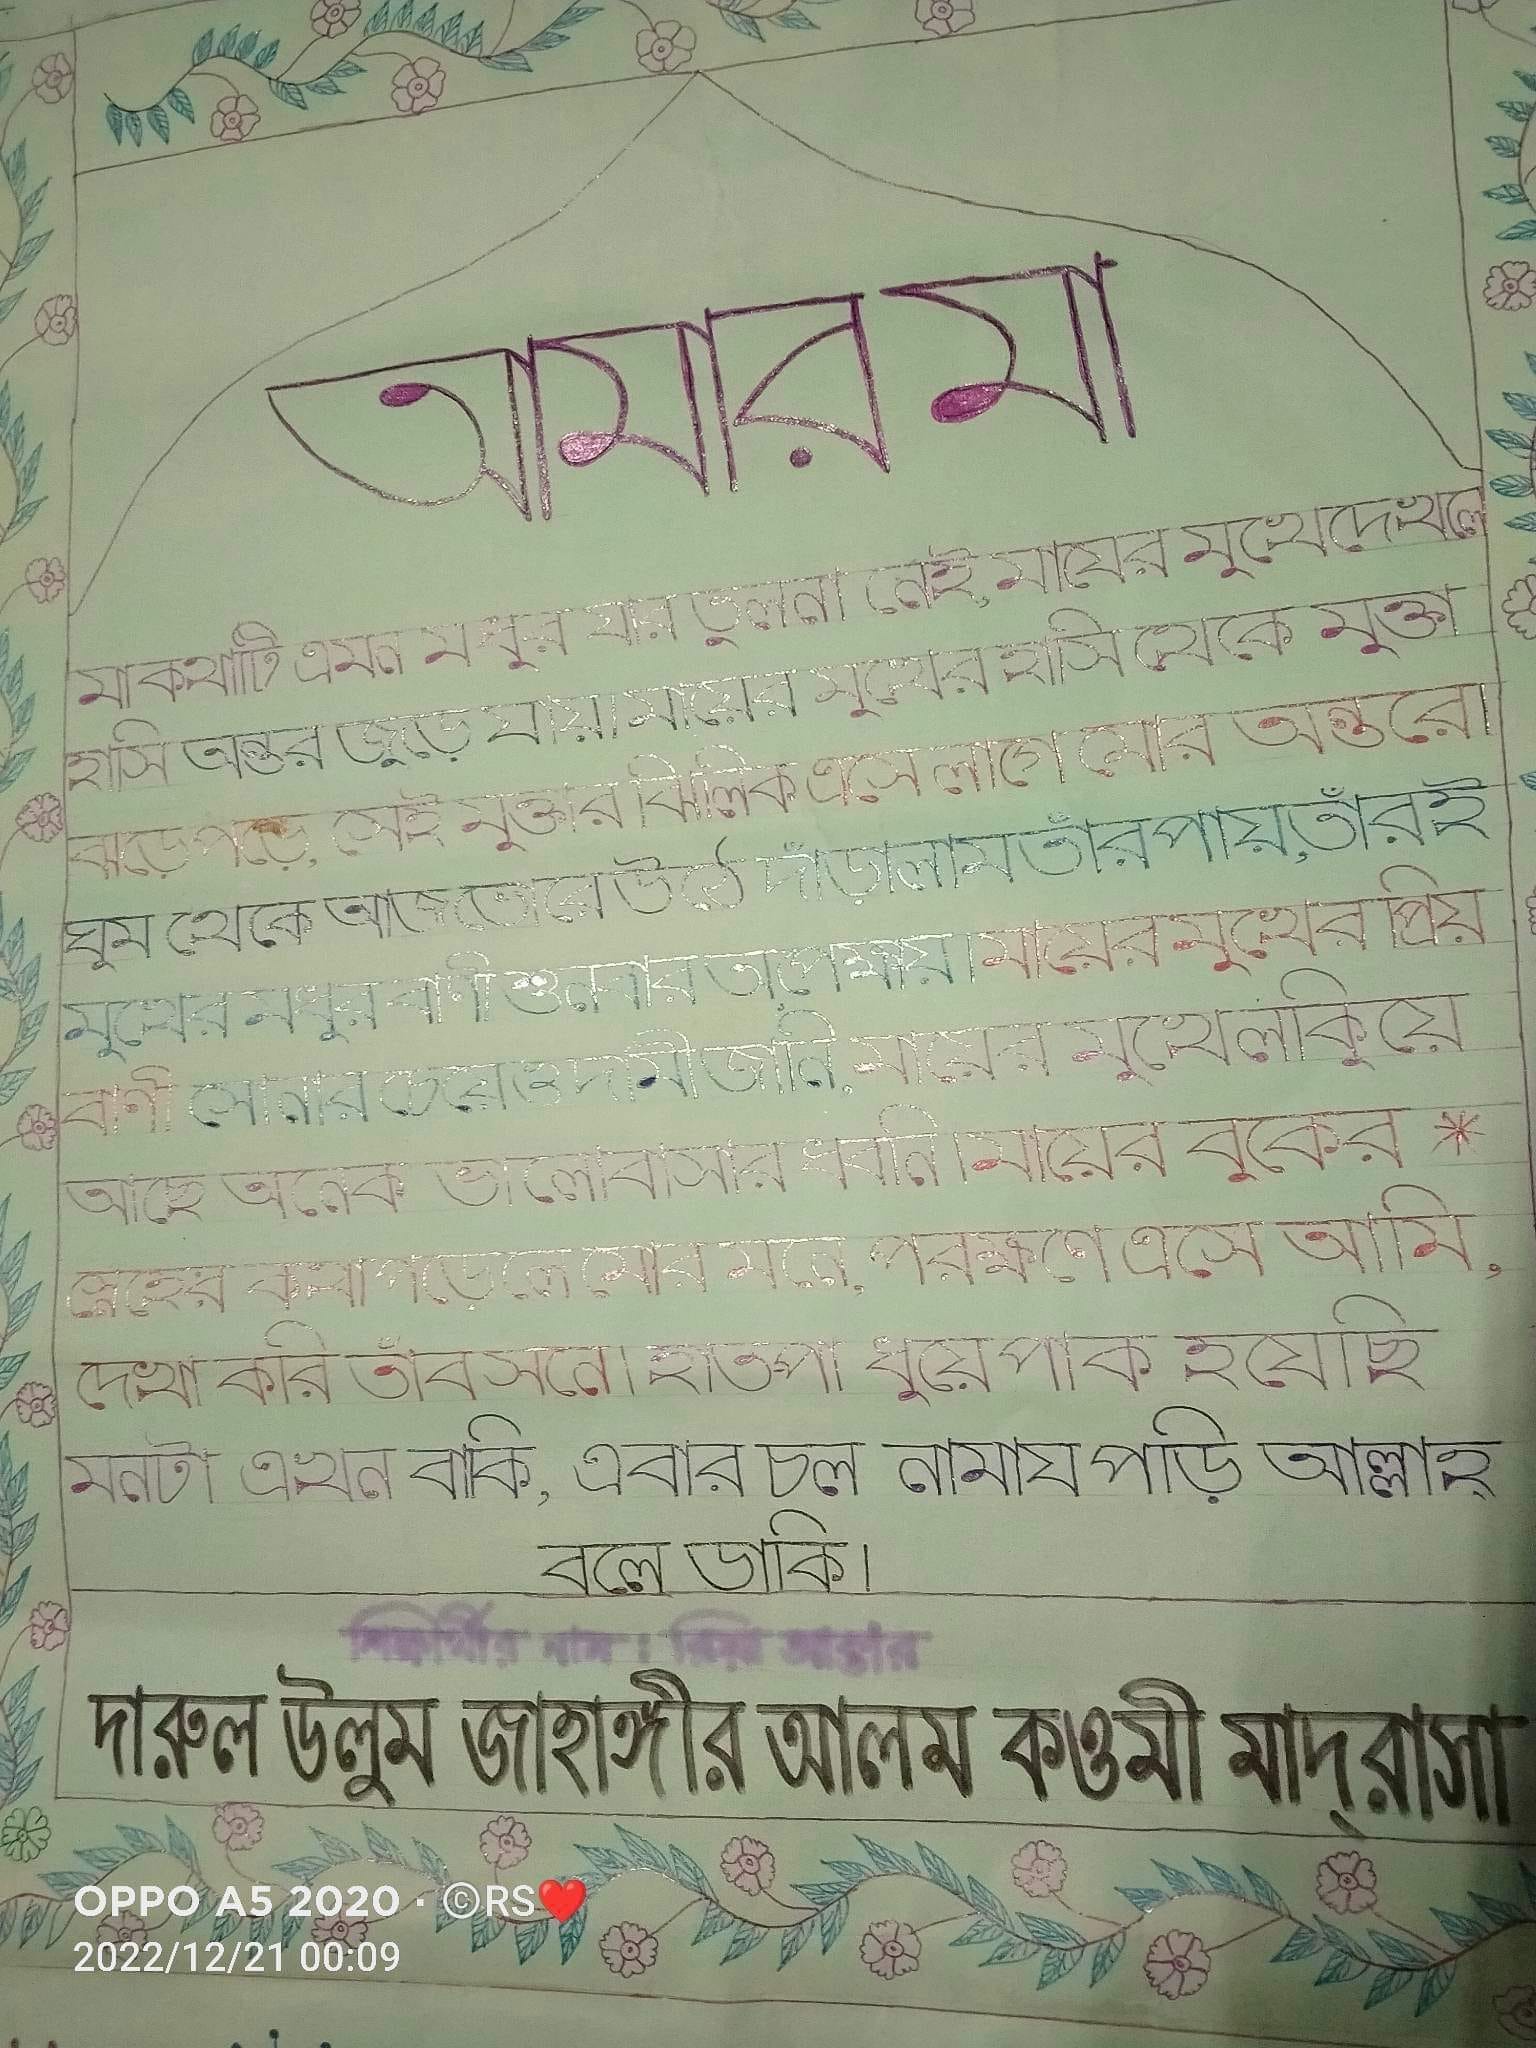 আমার মা
মা কথাটি এমন মধুর যার তুলনা নেই, মায়ের মুখে দেখলে
হাসি অন্তর জুড়ে যায়। মায়ের মুখের হাসি থেকে মুক্তা
ঝড়ে পড়ে, সেই মুক্তার ঝিলিক এসে লাগে মোর অন্তরে।
ঘুম থেকে আজ ভোরে উঠে দাঁড়ালাম তাঁর পায়, তাঁরই
মুখের মধুর বাণী শুনবার অপেক্ষায়। মায়ের মুখের প্রিয়
বাণী সোনার চেয়েও দামী জানি, মায়ের মুখে লুকিয়ে
আছে অনেক ভালোবাসার ধ্বনি। মায়ের বুকের *
স্নেহের কথা পড়েলে মোর মনে, পরক্ষণে এসে আমি,
দেখা করি তাঁর সনে। হাত পা ধুয়ে পাক হয়েছি
মনটা এখন বাকি, এবার চল নামায পড়ি আল্লাহ্
বলে ডাকি।
শিক্ষার্থীর নাম : আক্তার
দারুল উলুম জাহাঙ্গীর আলম কওমী মাদ্রাসা
OPPO A5 2020 · ©RS❤
2022/12/21 00:09